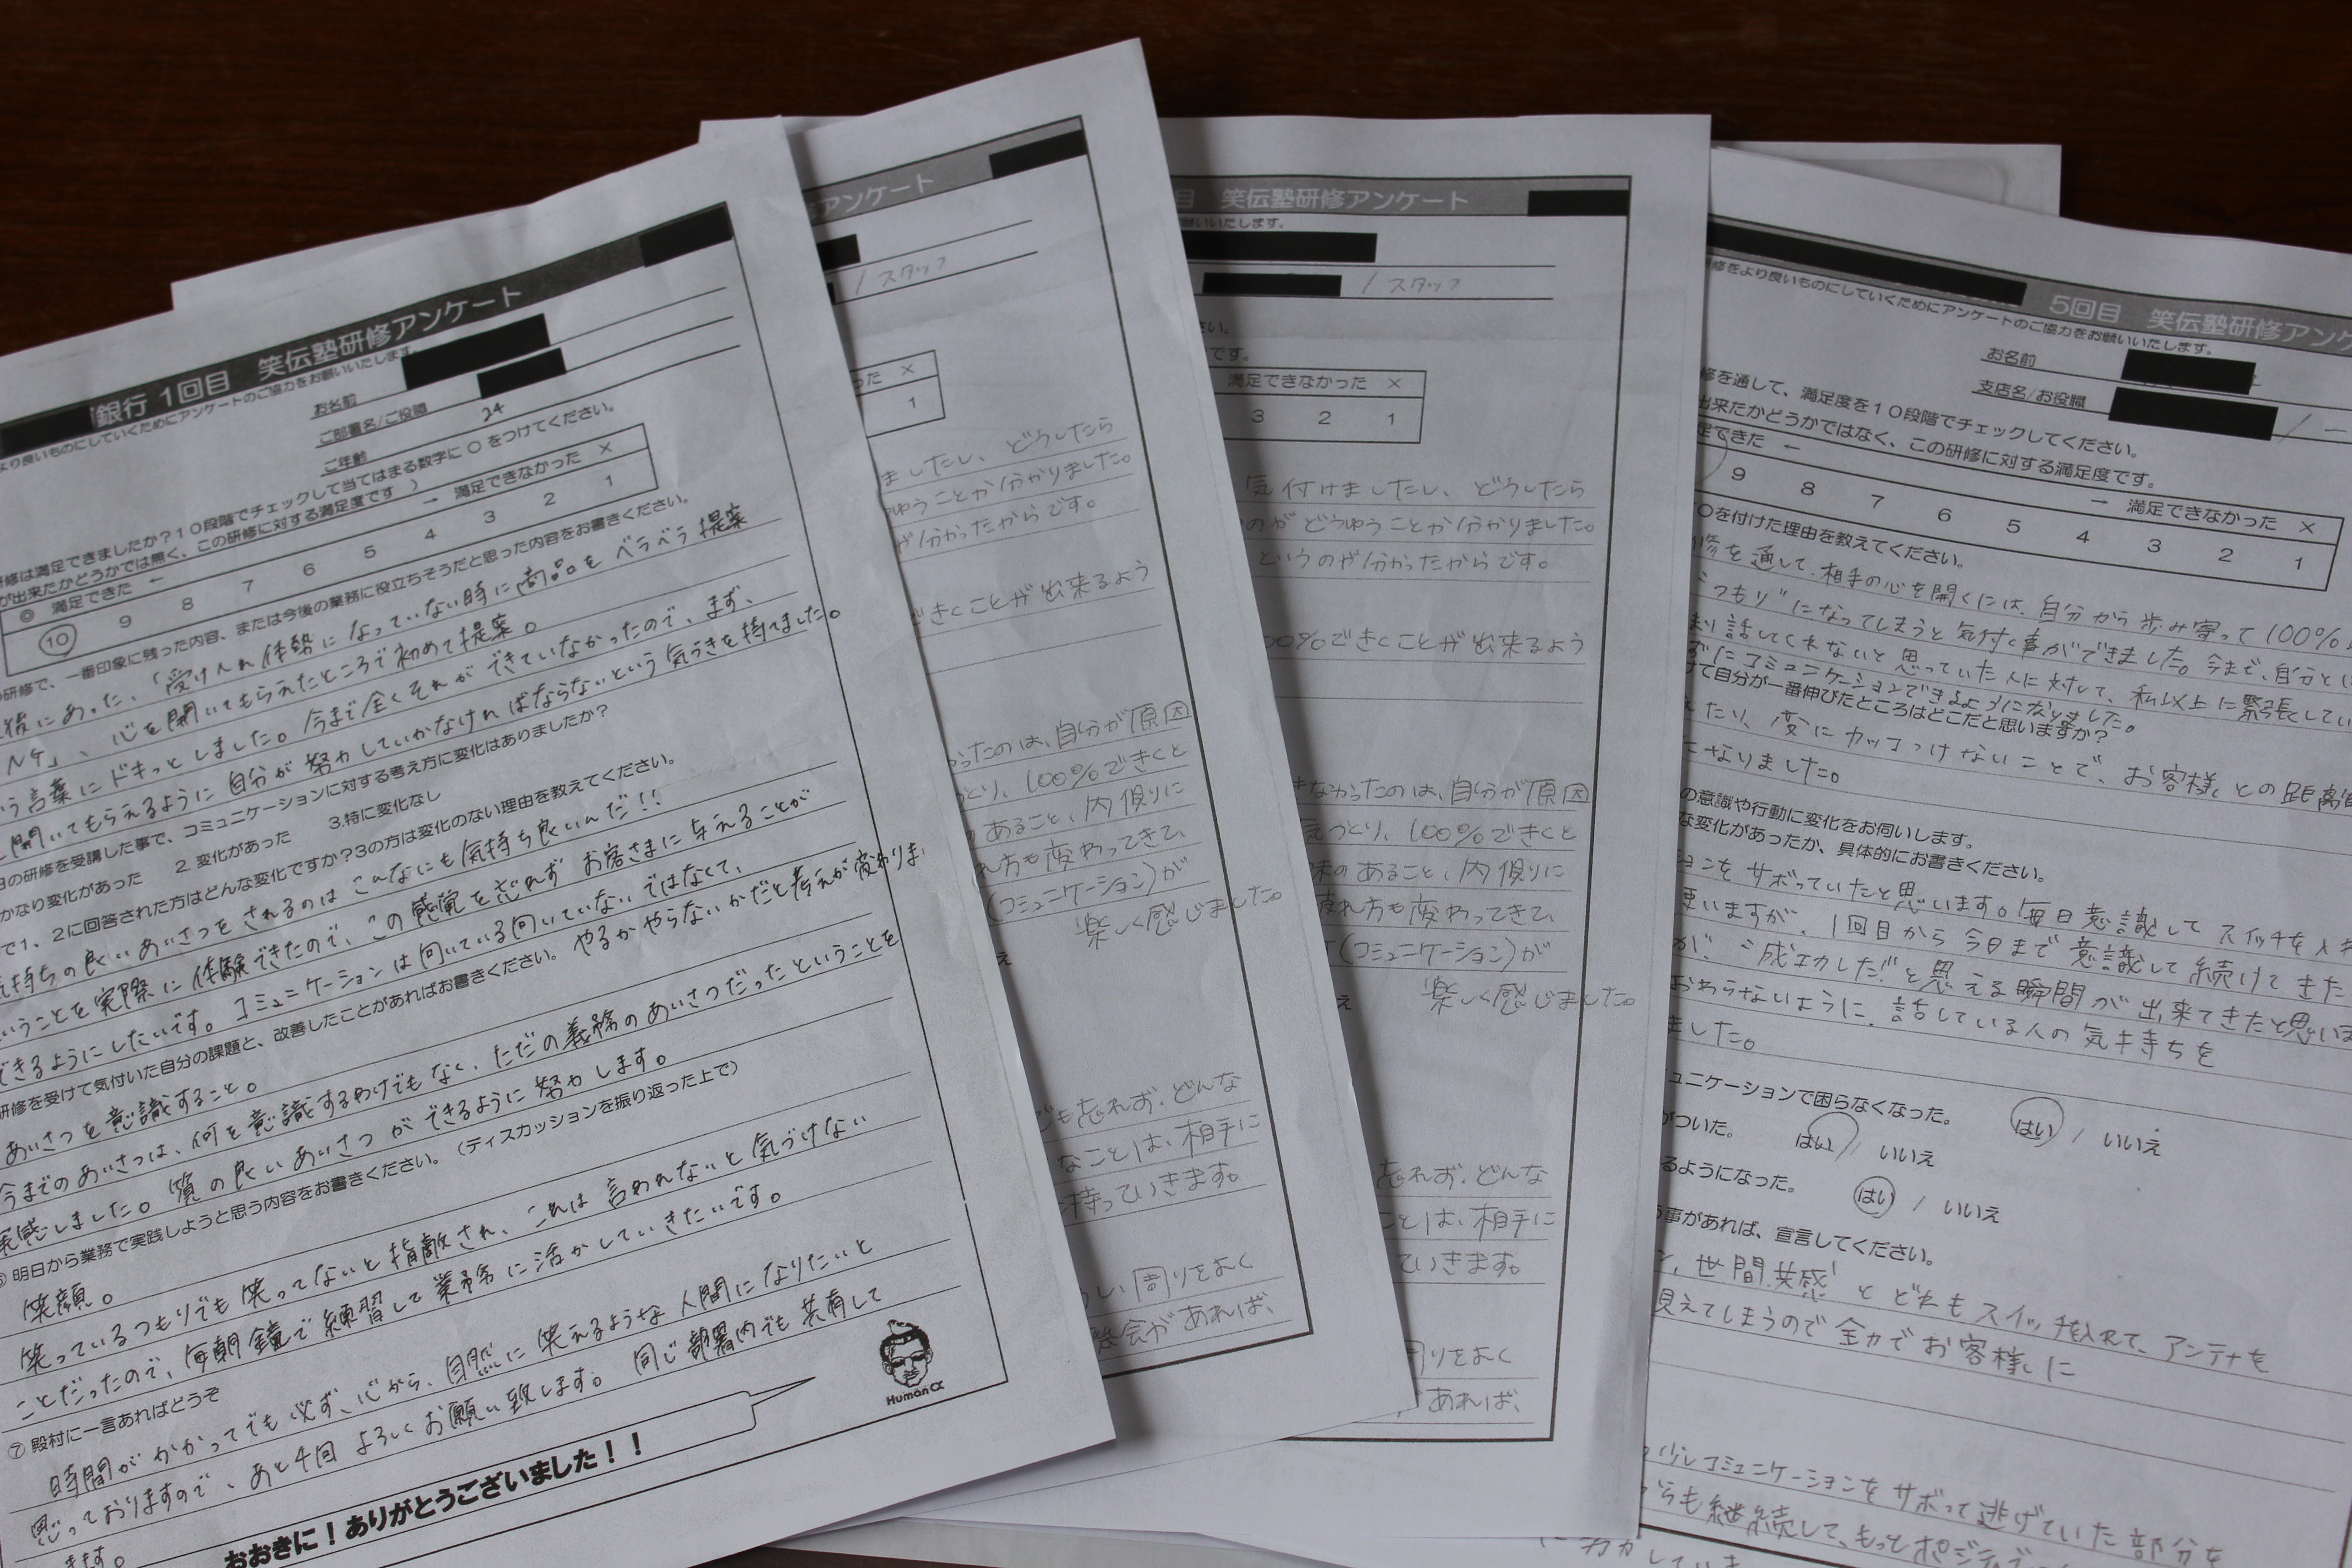 銀行 1回目 笑伝塾研修アンケート
より良いものにしていくためにアンケートのご協力をお願いいたします。
お名前
ご部署名/ご役職
ご年齢 24
研修は満足できましたか?10段階でチェックして当てはまる数字に○をつけてください。
が出来たかどうかでは無く、この研修に対する満足度です )
◎ 満足できた ← → 満足できなかった ×
10 9 8 7 6 5 4 3 2 1
の研修で、一番印象に残った内容、または今後の業務に役立ちそうだと思った内容をお書きください。
後にあった、「受け入れ体勢になっていない時に商品をベラベラ提案
ルケ」、心を開いてもらえたところで初めて提案。
いう言葉にドキっとしました。今まで全くそれができていなかったので、まず、
開いてもらえるように自分が努力していかなければならないという気づきを持てました。
日の研修を受講した事で、コミュニケーションに対する考え方に変化はありましたか?
かなり変化があった 2. 変化があった 3.特に変化なし
で1、2に回答された方はどんな変化ですか?3の方は変化のない理由を教えてください。
気持ちの良いあいさつをされるのはこんなにも気持ち良いんだ!!
いうことを実際に体験できたので、この感覚を忘れず お客さまに与えることが
できるようにしたいです。コミュニケーションは向いている向いていない ではなくて、
やるかやらないかだと考えが変わりま
研修を受けて気付いた自分の課題と、改善したことがあればお書きください。
あいさつを意識すること。
今までのあいさつは、何を意識するわけでもなく、ただの義務のあいさつだったということを
実感しました。質の良いあいさつができるように努力します。
明日から業務で実践しようと思う内容をお書きください。(ディスカッションを振り返った上で)
笑顔。
笑っているつもりでも笑ってないと指摘され、これは言われないと気づけない
ことだったので、毎朝鏡で練習して業務に活かしていきたいです。
⑦ 殿村に一言あればどうぞ
時間がかかってでも必ず、心から、自然に笑えるような人間になりたいと
思っておりますので、あと4回よろしくお願い致します。同じ部署内でも共有して
きます。
おおきに!ありがとうございました!!
Humanα
アンケート
/ スタッフ
った ×
1
ましたし、どうしたら
ゆうことか分かりました。
が分かったからです。
できくことが出来るよう
ったのは、自分が原因
とり、100%できくと
のあること、内側に
れ方も変わってきて、
(コミュニケーション)が
楽しく感じました。
え
でも忘れず、どんな
なことは、相手に
持っていきます。
しい周りをよく
機会があれば、
目 笑伝塾研修アンケート
願いいたします。
/ スタッフ
さい。
です。
満足できなかった ×
3 2 1
気付けましたし、どうしたら
のがどうゆうことか分かりました。
というのが分かったからです。
00%できくことが出来るよう
きなかったのは、自分が原因
気づとり、100%できくと
味のあること、内側に
疲れ方も変わってきて、
(コミュニケーション)が
え 楽しく感じました。
忘れず、どんな
ことは、相手に
ていきます。
周りをよく
あれば、
5回目 笑伝塾研修アンケ
研修をより良いものにしていくためにアンケートのご協力をお願いいたします。
お名前
支店名/お役職 / 一
修を通して、満足度を10段階でチェックしてください。
出来たかどうかではなく、この研修に対する満足度です。
足できた ← → 満足できなかった ×
9 8 7 6 5 4 3 2 1
○を付けた理由を教えてください。
修を通して、相手の心を開くには、自分から歩み寄って100%
"つもり"になってしまうと気付く事ができました。今まで、自分とは
まり話してくれないと思っていた人に対して、私以上に緊張してい
ずにコミュニケーションできるようになりました。
けて自分が一番伸びたところはどこだと思いますか?
えたり、変にカッコつけないことで、お客様との距離
になりました。
の意識や行動に変化をお伺いします。
な変化があったか、具体的にお書きください。
ションをサボっていたと思います。毎日意識してスイッチを入れ
思いますが、1回目から今日まで意識して続けてきた
が、"成功した"と思える瞬間が出来てきたと思いま
おわらないように、話している人の気持ちを
ました。
ミュニケーションで困らなくなった。 はい / いいえ
がついた。 はい / いいえ
るようになった。 はい / いいえ
う事があれば、宣言してください。
世間共感'とどれもスイッチを入れて、アンテナを
見えてしまうので全力でお客様に
少しコミュニケーションをサボって逃げていた部分を
からも継続して、もっとポジティブ